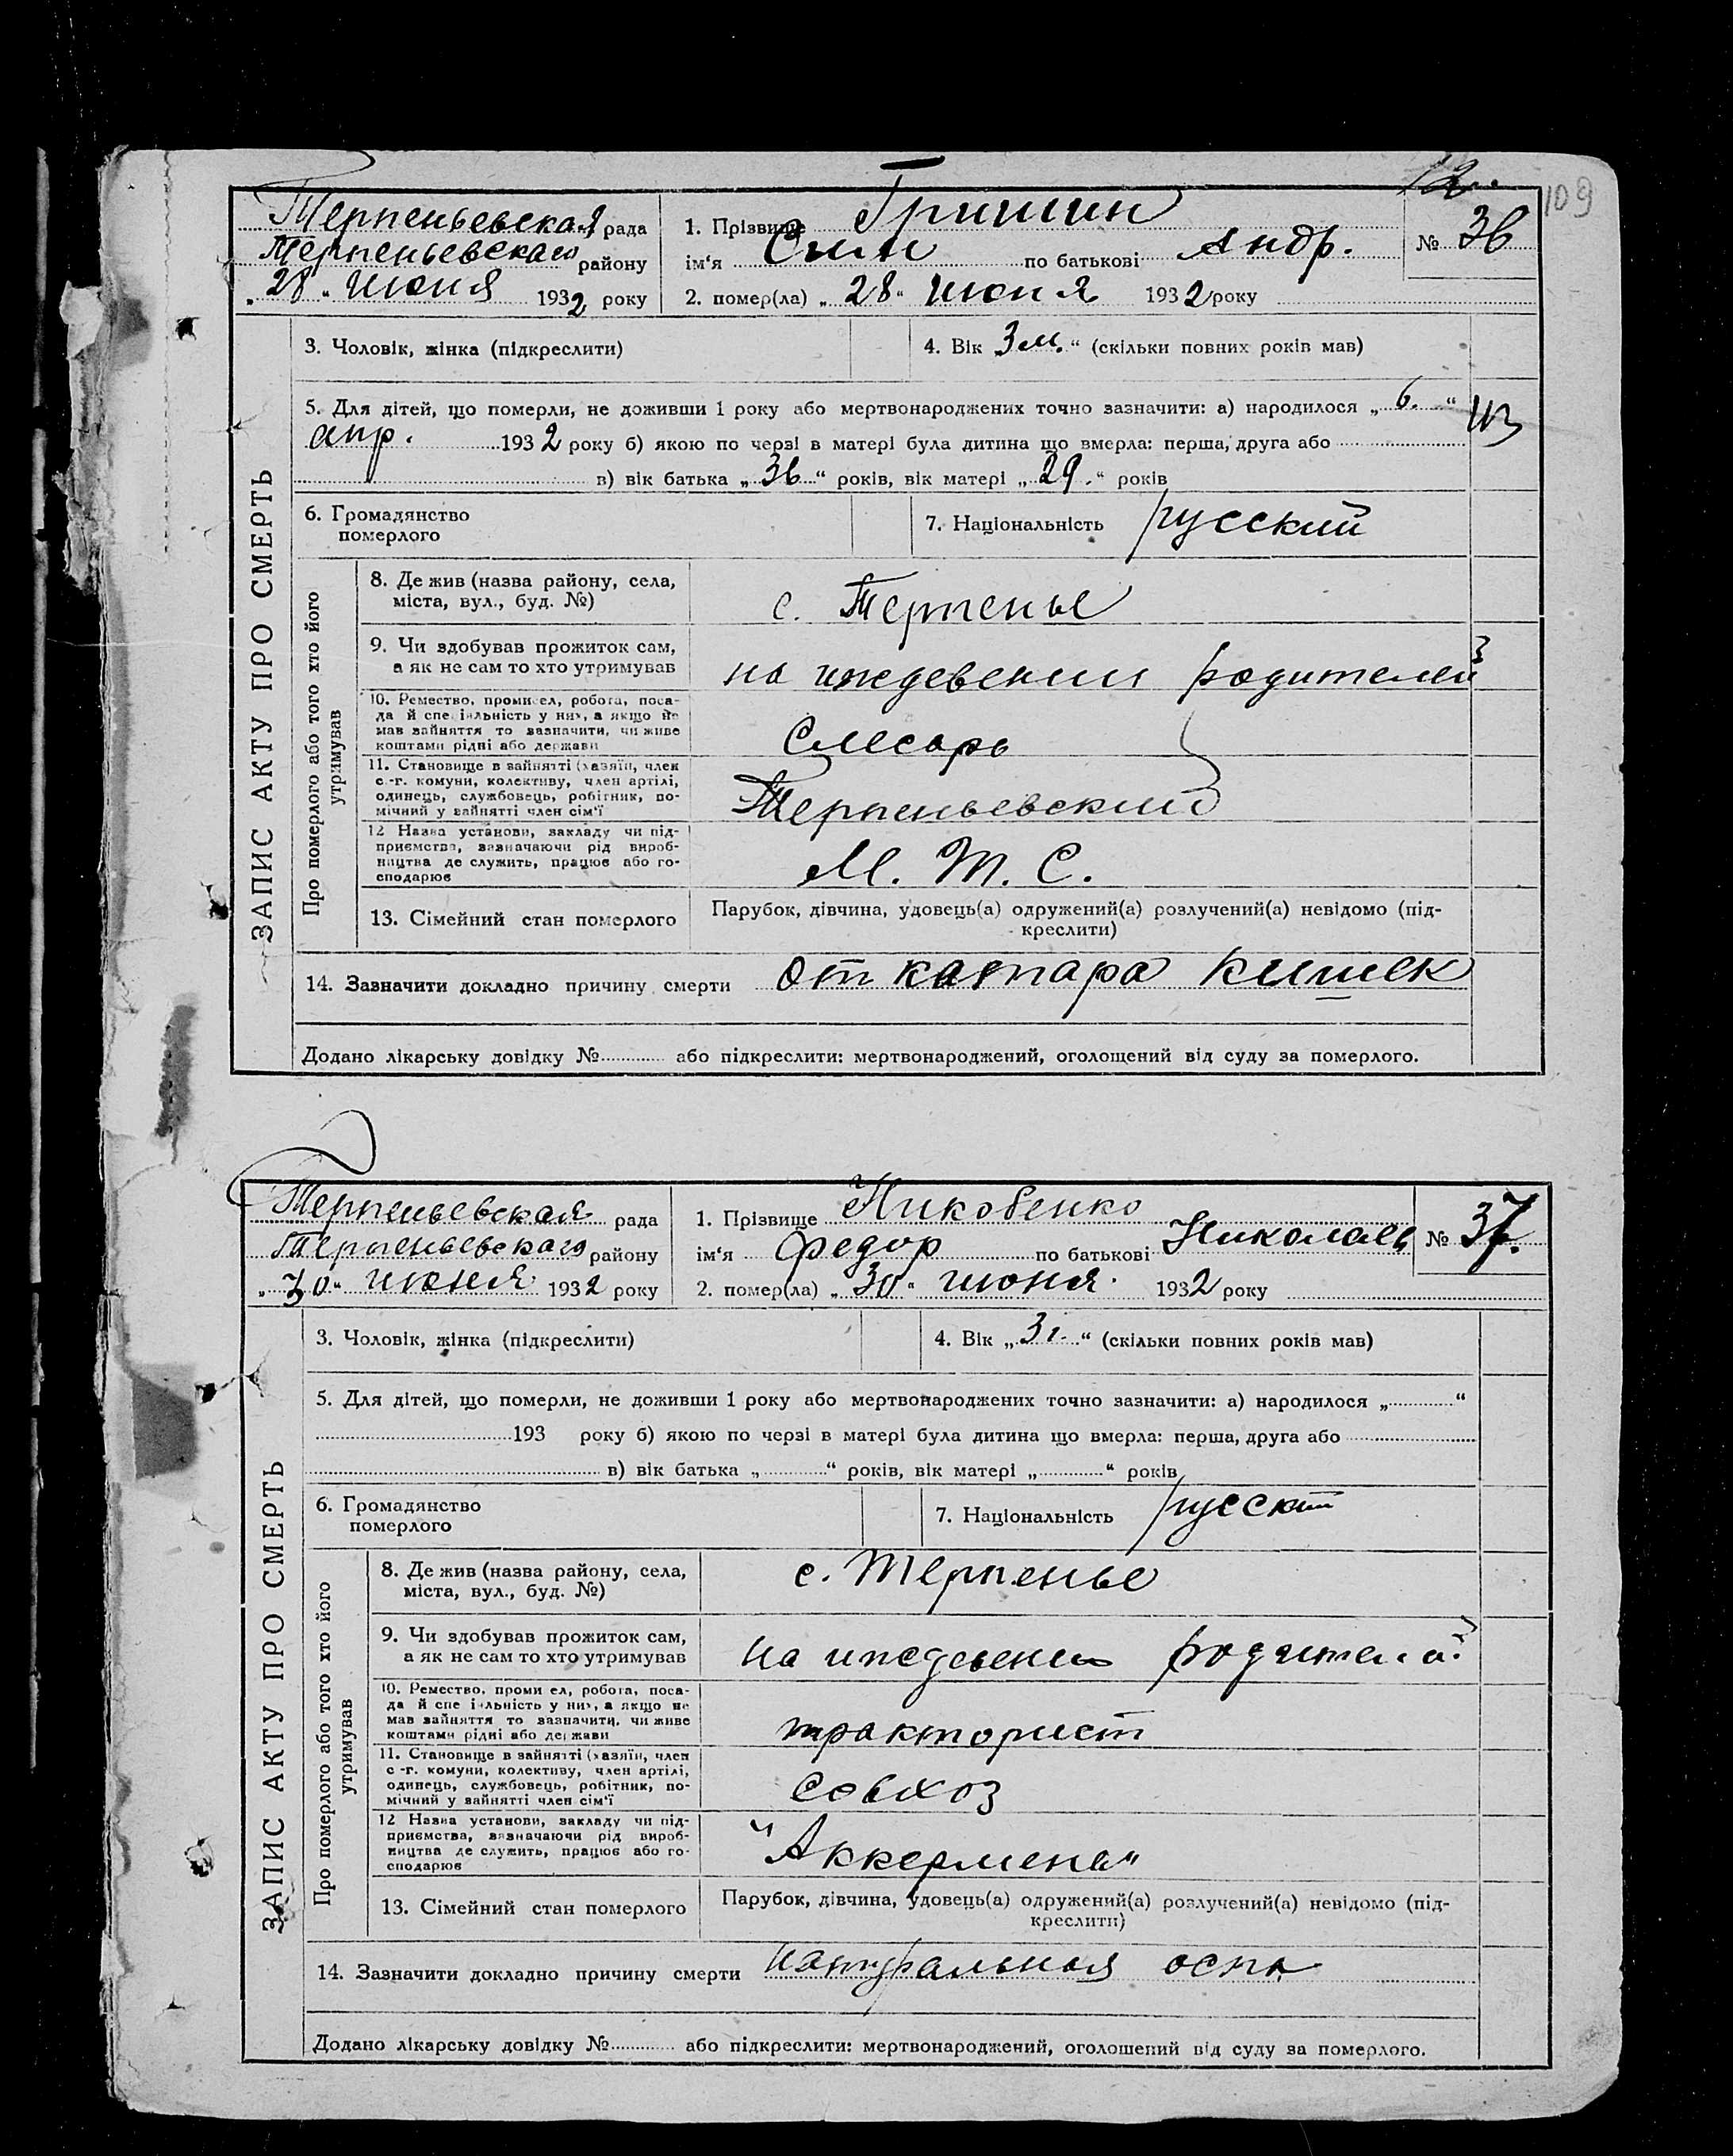 109
Терпеньевская рада
Терпеньевскаго району
„28“ июня 1932 року
1. Прізвище Гришин
ім‘я Сын по батькові Андр.
№ 36
2. помер(ла) „28“ июня 1932 року
ЗАПИС АКТУ ПРО СМЕРТЬ
3. Чоловік, жінка (підкреслити)
4. Вік „3 м.“ (скільки повних років мав)
5. Для дітей, що померли, не доживши 1 року або мертвонароджених точно зазначити: а) народилося „6.“
апр. 1932 року б) якою по черзі в матері була дитина що вмерла: перша, друга або
в) вік батька „36“ років, вік матері „29.“ років
6. Громадянство
померлого
7. Національність русский
Про померлого або того хто його
утримував
8. Де жив (назва району, села,
міста, вул., буд. №)
с. Терпенье
9. Чи здобував прожиток сам,
а як не сам то хто утримував
на иждевении родителей
10. Ремество, промисел, робота, поса-
да й спеціяльність у них, а якщо не
мав зайняття то зазначити, чи живе
коштами рідні або держави
Слесарь
11. Становище в зайнятті (хазяїн, член
с.-г. комуни, колективу, член артілі,
одинець, службовець, робітник, по-
мічний у зайнятті член сім‘ї
Терпеньевский
12 Назва установи, закладу чи під-
приємства, зазначаючи рід вироб-
ництва де служить, працює або го-
сподарює
М. Т. С.
13. Сімейний стан померлого
Парубок, дівчина, удовець(а) одружений(а) розлучений(а) невідомо (під-
креслити)
14. Зазначити докладно причину смерти от катара кишек
Додано лікарську довідку № або підкреслити: мертвонароджений, оголощений від суду за померлого.
Терпеньевская рада
Терпеньевскаго району
„30“ июня 1932 року
1. Прізвище Никобенко
ім‘я Федор по батькові Николаев
№ 37.
2. помер(ла) „30“ июня. 1932 року
ЗАПИС АКТУ ПРО СМЕРТЬ
3. Чоловік, жінка (підкреслити)
4. Вік „3 г.“ (скільки повних років мав)
5. Для дітей, що померли, не доживши 1 року або мертвонароджених точно зазначити: а) народилося „ “
193 року б) якою по черзі в матері була дитина що вмерла: перша, друга або
в) вік батька „ “ років, вік матері „ “ років
6. Громадянство
померлого
7. Національність русский
Про померлого або того хто його
утримував
8. Де жив (назва району, села,
міста, вул., буд. №)
с. Терпенье
9. Чи здобував прожиток сам,
а як не сам то хто утримував
на иждевении родителей
10. Ремество, промисел, робота, поса-
да й спеціяльність у них, а якщо не
мав зайняття то зазначити, чи живе
коштами рідні або держави
тракторист
11. Становище в зайнятті (хазяїн, член
с-г. комуни, колективу, член артілі,
одинець, службовець, робітник, по-
мічний у зайнятті член сім‘ї
совхоз
12 Назва установи, закладу чи під-
приємства, зазначаючи рід вироб-
ництва де служить, працює або го-
сподарює
"Аккермень"
13. Сімейний стан померлого
Парубок, дівчина, удовець(а) одружений(а) розлучений(а) невідомо (під-
креслити)
14. Зазначити докладно причину смерти натуральная оспа
Додано лікарську довідку № або підкреслити: мертвонароджений, оголошений від суду за померлого.